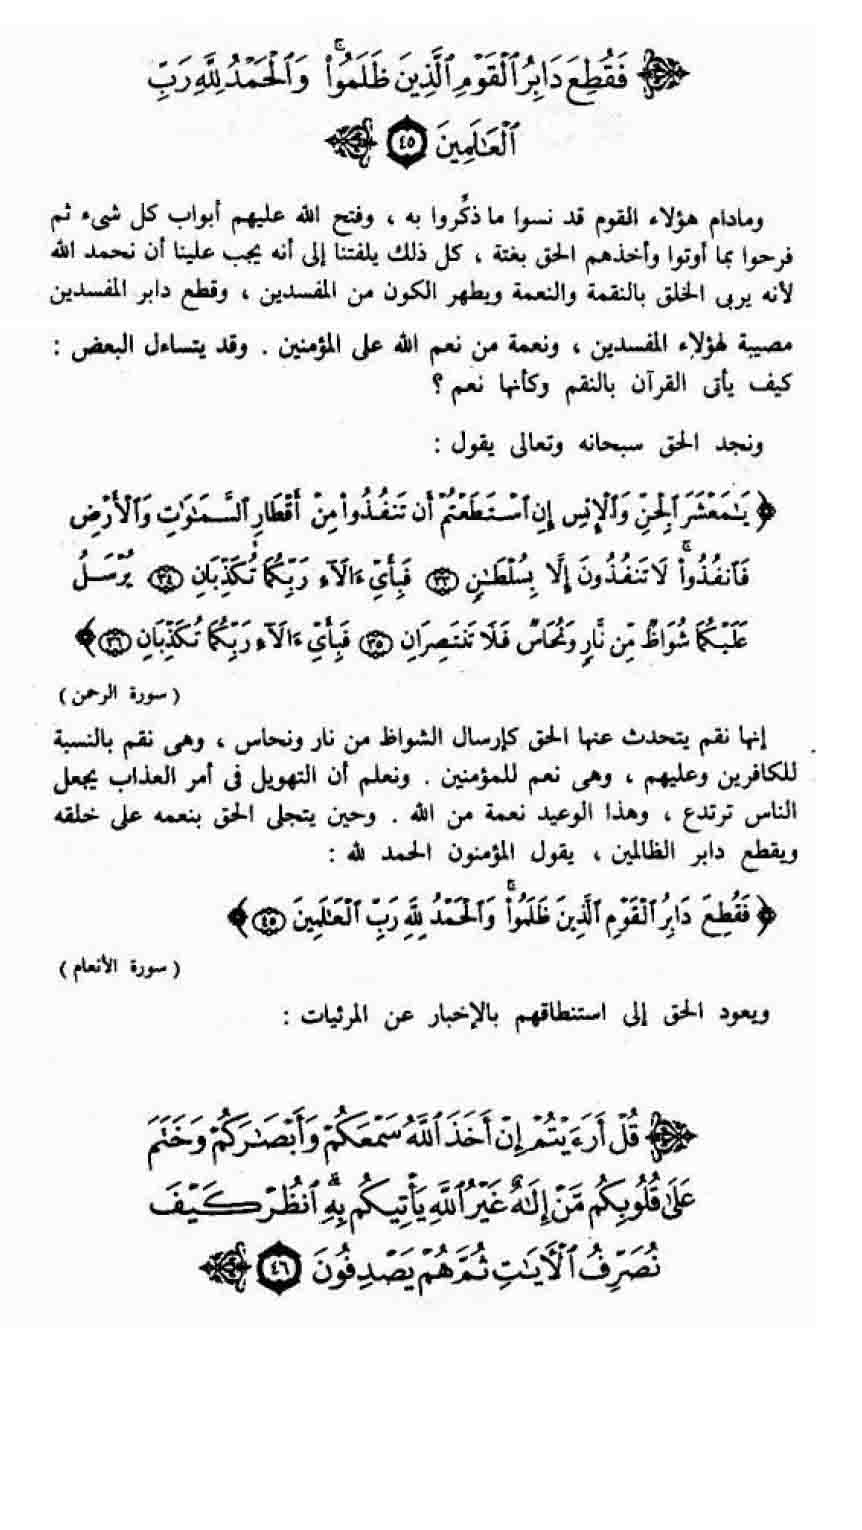 ﴿ فَقُطِعَ دَابِرُ ٱلْقَوْمِ ٱلَّذِينَ ظَلَمُوا۟ ۚ وَٱلْحَمْدُ لِلَّهِ رَبِّ
ٱلْعَـٰلَمِينَ ٤٥ ﴾
ومادام هؤلاء القوم قد نسوا ما ذكِّروا به ، وفتح الله عليهم أبواب كل شىء ثم
فرحوا بما أوتوا وأخذهم الحق بغتة ، كل ذلك يلفتنا إلى أنه يجب علينا أن نحمد الله
لأنه يربى الخلق بالنقمة والنعمة ويطهر الكون من المفسدين ، وقطع دابر المفسدين
مصيبة لهؤلاء المفسدين ، ونعمة من نعم الله على المؤمنين . وقد يتساءل البعض :
كيف يأتى القرآن بالنقم وكأنها نعم ؟
ونجد الحق سبحانه وتعالى يقول :
﴿ يَـٰمَعْشَرَ ٱلْجِنِّ وَٱلْإِنسِ إِنِ ٱسْتَطَعْتُمْ أَن تَنفُذُوا۟ مِنْ أَقْطَارِ ٱلسَّمَـٰوَٰتِ وَٱلْأَرْضِ
فَٱنفُذُوا۟ ۚ لَا تَنفُذُونَ إِلَّا بِسُلْطَـٰنٍ ٣٣ فَبِأَىِّ ءَالَآءِ رَبِّكُمَا تُكَذِّبَانِ ٣٤ يُرْسَلُ
عَلَيْكُمَا شُوَاظٌ مِّن نَّارٍ وَنُحَاسٌ فَلَا تَنتَصِرَانِ ٣٥ فَبِأَىِّ ءَالَآءِ رَبِّكُمَا تُكَذِّبَانِ ٣٦ ﴾
( سورة الرحمن )
إنها نقم يتحدث عنها الحق كإرسال الشواظ من نار ونحاس ، وهى نقم بالنسبة
للكافرين وعليهم ، وهى نعم للمؤمنين . ونعلم أن التهويل فى أمر العذاب يجعل
الناس ترتدع ، وهذا الوعيد نعمة من الله . وحين يتجلى الحق بنعمه على خلقه
ويقطع دابر الظالمين ، يقول المؤمنون الحمد لله :
﴿ فَقُطِعَ دَابِرُ ٱلْقَوْمِ ٱلَّذِينَ ظَلَمُوا۟ ۚ وَٱلْحَمْدُ لِلَّهِ رَبِّ ٱلْعَـٰلَمِينَ ٤٥ ﴾
( سورة الأنعام )
ويعود الحق إلى استنطاقهم بالإخبار عن المرئيات :
﴿ قُلْ أَرَءَيْتُمْ إِنْ أَخَذَ ٱللَّهُ سَمْعَكُمْ وَأَبْصَـٰرَكُمْ وَخَتَمَ
عَلَىٰ قُلُوبِكُم مَّنْ إِلَـٰهٌ غَيْرُ ٱللَّهِ يَأْتِيكُم بِهِ ۗ ٱنظُرْ كَيْفَ
نُصَرِّفُ ٱلْـَٔايَـٰتِ ثُمَّ هُمْ يَصْدِفُونَ ٤٦ ﴾